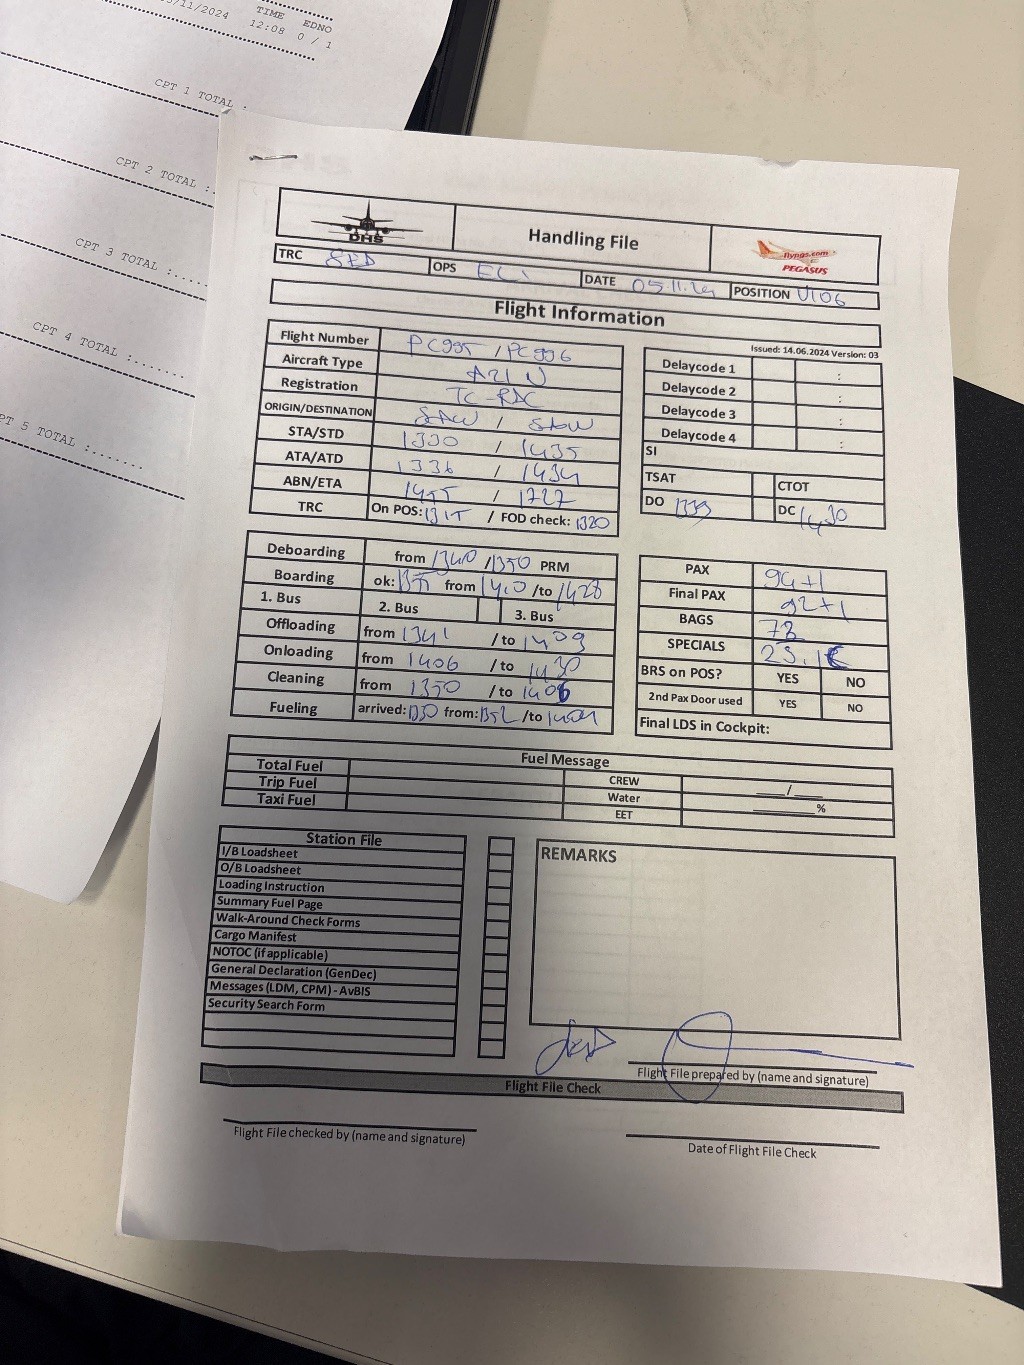 /11/2024
TIME EDNO
12:08 0 / 1
CPT 1 TOTAL :
CPT 2 TOTAL :
CPT 3 TOTAL :.....
CPT 4 TOTAL :.......
PT 5 TOTAL :.......
DHS
Handling File
flypgs.com
PEGASUS
TRC SED OPS ECI DATE 05.11.24 POSITION V106
Flight Information
Issued: 14.06.2024 Version: 03
Flight Number PC995 / PC996
Aircraft Type A21N
Registration TC-RDC
ORIGIN/DESTINATION SAW / SAW
STA/STD 1330 / 1435
ATA/ATD 1336 / 1434
ABN/ETA 1455 / 1727
TRC On POS: 1315 / FOD check: 1320
Delaycode 1 :
Delaycode 2 :
Delaycode 3 :
Delaycode 4 :
SI
TSAT CTOT
DO 1339 DC 1430
Deboarding from 1340 / 1350 PRM
Boarding ok: 1355 from 1410 /to 1428
1. Bus 2. Bus 3. Bus
Offloading from 1341 /to 1403
Onloading from 1406 /to 1430
Cleaning from 1350 /to 1406
Fueling arrived: 1330 from: 1352 /to 1404
PAX 94+1
Final PAX 92+1
BAGS 73
SPECIALS
BRS on POS? YES NO
2nd Pax Door used YES NO
Final LDS in Cockpit:
Fuel Message
Total Fuel CREW ____/____
Trip Fuel Water ________%
Taxi Fuel EET
Station File
I/B Loadsheet
O/B Loadsheet
Loading Instruction
Summary Fuel Page
Walk-Around Check Forms
Cargo Manifest
NOTOC (if applicable)
General Declaration (GenDec)
Messages (LDM, CPM) - AvBIS
Security Search Form
REMARKS
Flight File prepared by (name and signature)
Flight File Check
Flight File checked by (name and signature)
Date of Flight File Check